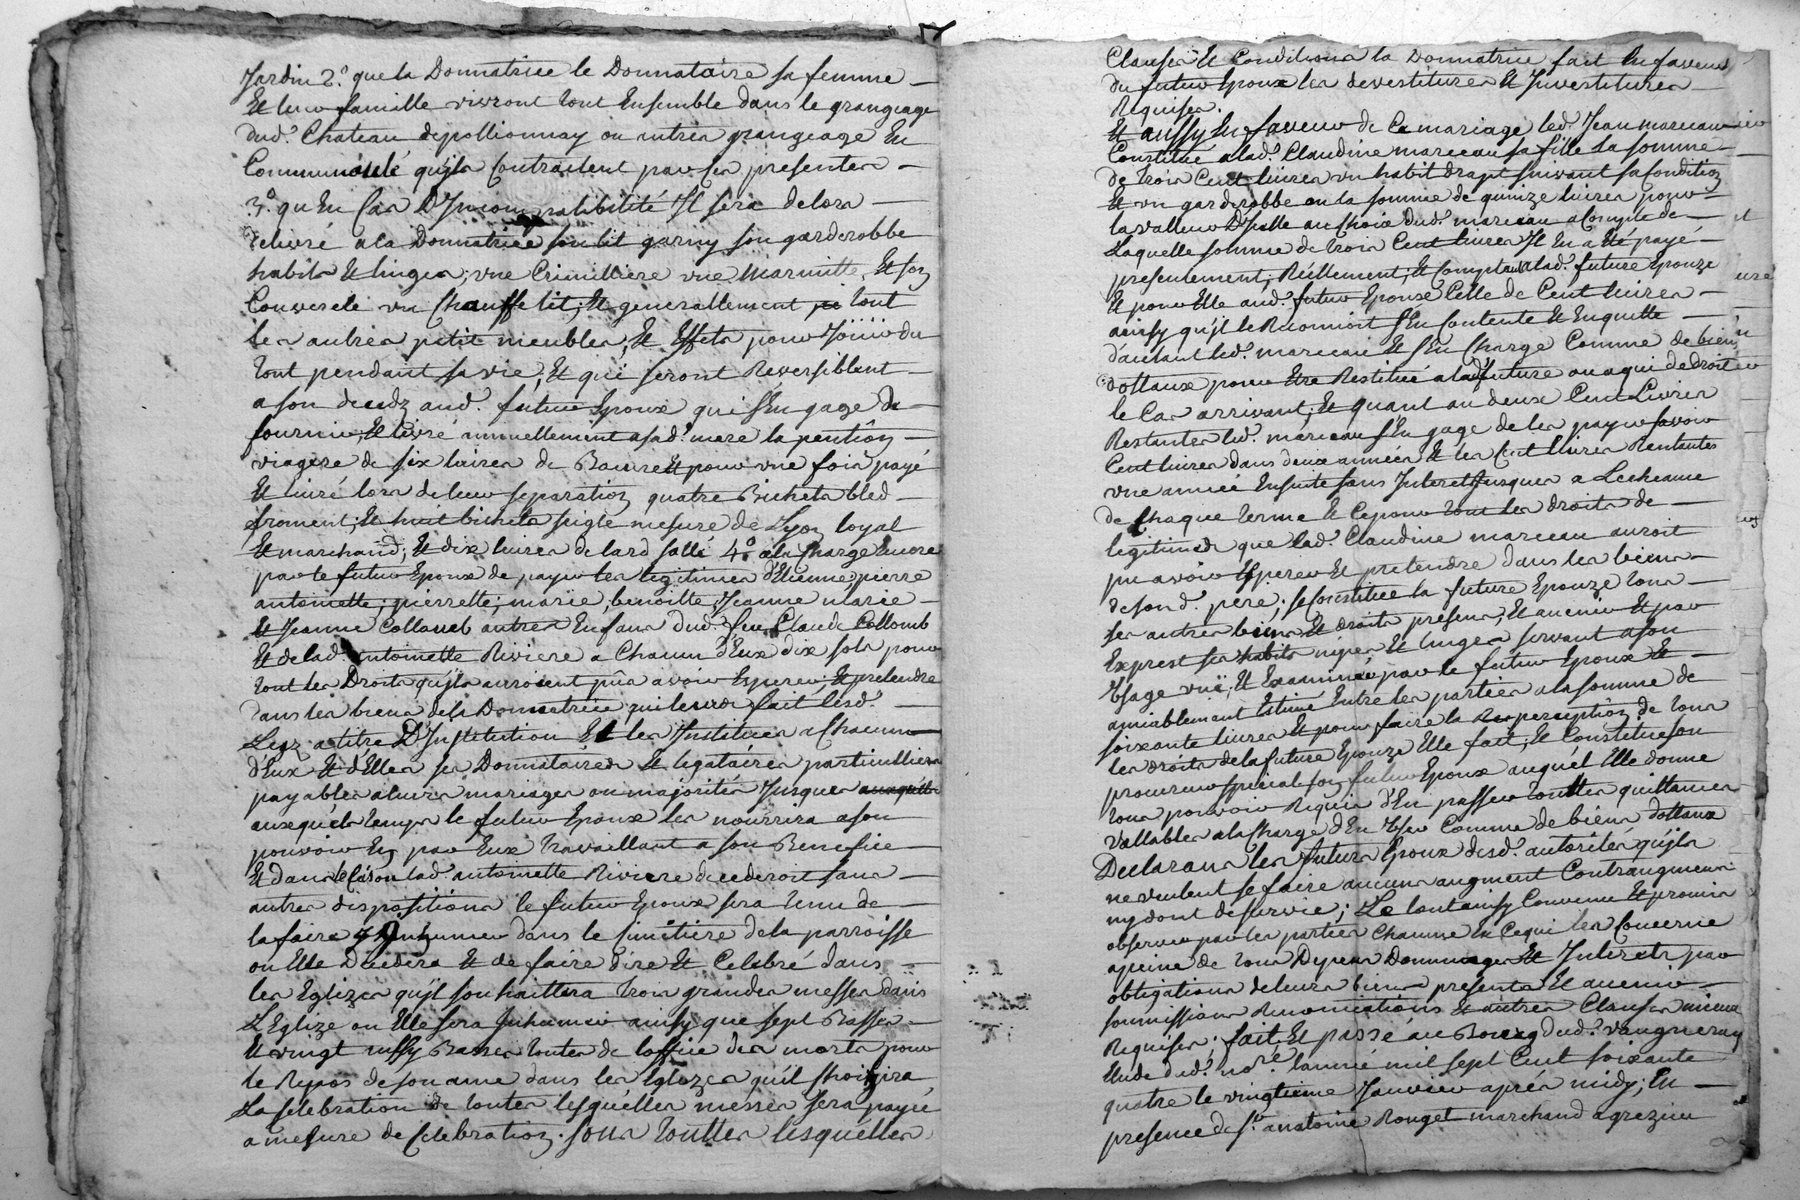 Jardin 2.° que la Donnatrice le Donnataire sa femme
Et leur famille vivront tout Ensemble dans le grangeage
dud.t Chateau depollionnay ou autres grangeage En
Communauté qu'jls Contractent par Ces presentes
3.° qu'En Cas D'Jncompatibilité Jl sera delors
delivré a la Donnatrice son lit garny son garderobbe
habits Et linges, une Crimilliere une Marmitte, Et son
Couvercle un Chauffe lit; Et generallement tout
les autres petit meubles, Et Effets pour Joüir du
tout pendant sa vie, Et quï seront Reversiblent
a son decedz aud.t futur Epoux qui s'En gage de
fournir, Et livré annuellement a sad.e mere la pention
viagere de six livres de Baurre Et pour une fois payé
Et livré lors de leur separation quatre Bichets bled
froment, Et huit bichets seigle mesure de Lyon loyal
Et marchand; Et dix livres de lard sallé 4.° a la Charge Encore
par le futur Epoux de payer les legitimes d'Etienne, pierre
antoinette, pierrette, marie, benoitte, Jeanne marie
Et Jeanne Collomb autres Enfans dud.t feu Claude Collomb
Et de lad.e antoinette Riviere a Chacun d'Eux dix sols pour
tout les Droits qu'jls auroient pûs avoir Esperer, Et pretendre
dans les biens de la Donnatrice qui leurs fait lesd.s
Legz a titre D'Jnstitution Et les Jnstituer a Chacun
d'Eux Et d'Elles ses Donnataires Et legataires particulliers
payables a leurs mariages ou majorités Jusques
auxquels temps le futur Epoux les nourrira a son
pouvoir Eux par Eux travaillant a son Benefice
Et dans le Cas ou lad.e antoinette Riviere decederoit sans
autres dispositions le futur Epoux sera tenu de
la faire Jnhumer dans le simitiere de la parroisse
ou Elle Decedera Et de faire dire Et Celebré dans
les Eglizes qu'jl souhaittera trois grandes messes dans
L'Eglize ou Elle sera Jnhumée ainsy que sept Basses
Et vingt aussy Basses toutes de l'office des morts pour
le Repos de son ame dans les Eglizes qu'il Choizira
La selebration de toutes lesquelles messes sera payée
a mesure de selebration. sous touttes lesquelles
Clauses Et Conditions la Donnatrice fait En faveur
du futur Epoux les devestitures Et Jnvestitures
Requises.
Et aussy En faveur de Ce mariage led.t Jean mareau
Constitue a lad.e Claudine mareau sa fille la somme
de trois Cent livres un habit drapt suivant sa Condition
Et un garderobbe ou la somme de quinze livres pour
la valleur D'Jcelle au Choix Dud.t mareau a Compte de
Laquelle somme de trois Cent livres Jl En a Eté payé
presentement, Réellement, Et Comptant a lad.e future Epouze
Et pour Elle aud.t futur Epoux Celle de Cent livres
ainsy qu'jl le Reconnoit s'En Contente Et Enquitte
d'autant led.t mareau Et s'En Charge Comme de biens
dottaux pour Etre Restitué a lad.e future ou a qui de droit
le Cas arrivant; Et quant au deux Cent Livres
Restantes led.t mareau s'En gage de les payer savoir
Cent livres dans deux années Et les Cent livres Restantes
une année Ensuite sans Jnterets Jusques a Lecheance
de Chaque terme Et Ce pour tout les droits de
legitimes que lad.e Claudine mareau auroit
pu avoir Esperer Et pretendre dans les biens
de sond.t pere; se Constitue la future Epouze tous
ses autres biens Et droits presens, Et avenir Et par
Exprest ses habits nipes Et linges servant a son
Usage vuë, Et Examinée par le futur Epoux Et
amiablement Estimé Entre les parties a la somme de
soixante livres Et pour faire la Repersception de tous
les droits de la future Epouze Elle fait, Et Constitue son
procureur special son futur Epoux auquel Elle donne
tous pouvoir Requis d'En passer touttes quittances
Vallables a la Charge d'En User Comme de biens dottaux
Declarans les futurs Epoux desd.s autorités qu'jls
ne veulent se faire aucuns augment Contraugment
ny dont de survie; Le tout ainsy Convenu Et promis
observer par les parties Chacune En Ce qui les Concerne
a peine de tous Depens Dommages Et Jnterets par
obligations de leurs biens presents Et avenir
soumissions Renonciations Et autres Clauses mieux
Requises. fait Et passé au Bourg dud.t vaugneray
Etude dud.t no.re l'année mil sept Cent soixante
quatre le vingtieme Janvier aprés midy; En
presence de s.r anatoine Rouget marchand a grezieu